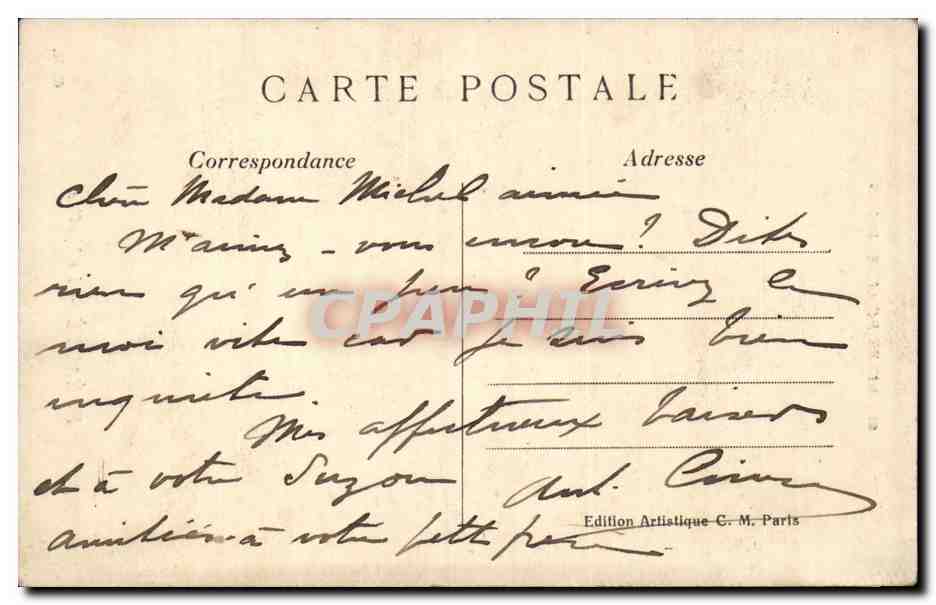 CARTE POSTALE
Correspondance
Adresse
Chère Madame Michel aimée
M'aimez-vous encore? Dites
rien qu'un peu? Ecrivez le
moi vite car je suis bien
inquiète.
Mes affectueux baisers
et à votre Suzon
amitiés à votre petit père
CPAPHIL
Edition Artistique C. M. Paris